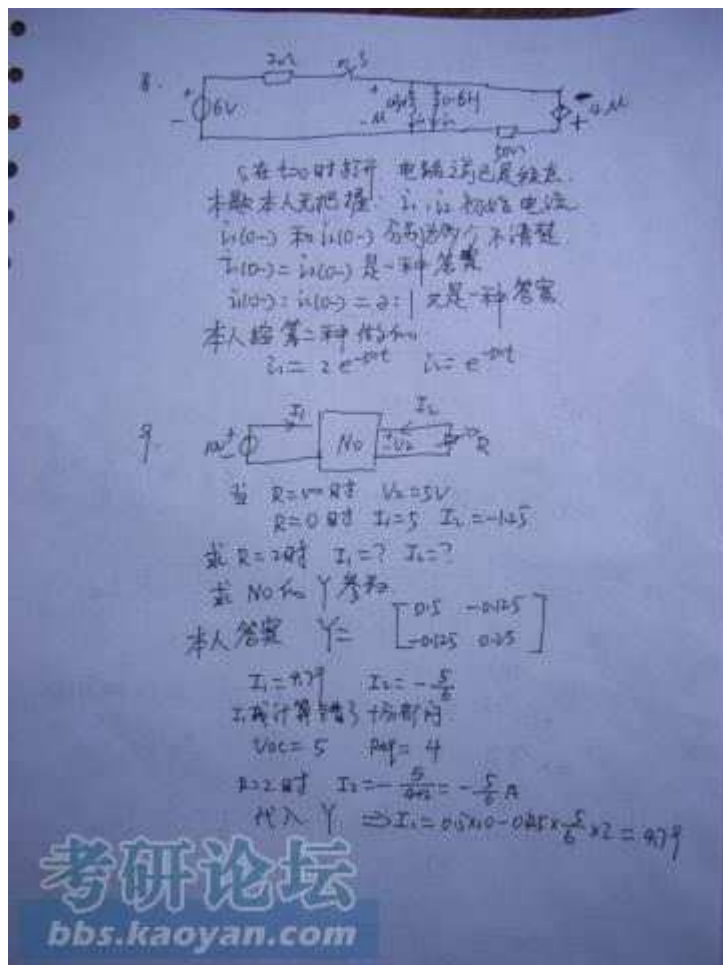 8.
2Ω S
6V 0.6H 4u
50Ω
S在t=0时打开 电路之前已是稳态.
本题本人无把握 i₁, i₂ 初始电流
i₁(0-) 和 i₂(0-) 分别为多少不清楚
i₁(0-) = i₂(0-) 是一种答案
i₁(0-) : i₂(0-) = 2:1 又是一种答案
本人按第二种做的
i₁ = 2e⁻⁵⁰ᵗ i₂ = e⁻⁵⁰ᵗ
9.
I₁ I₂
No V₂ R
当 R=∞时 V₂=5V
R=0时 I₁=5 I₂=-1.25
求 R=2时 I₁=? I₂=?
求 No的 Y参数
本人答案 Y= [0.5 -0.125
-0.125 0.25]
I₁=4.79 I₂=-5/6
I₁我计算错了 十分郁闷
Voc=5 Req=4
R=2时 I₂=-5/(4+2)=-5/6 A
代入 Y ⇒ I₁=0.5×10-0.125×5/6×2=4.79
考研论坛
bbs.kaoyan.com